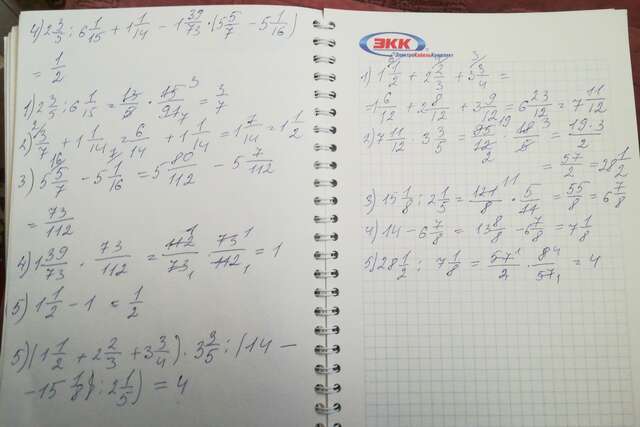 4) 2 3/5 : 6 1/15 + 1 1/14 - 1 39/73 · (5 5/7 - 5 1/16)
= 1/2
1) 2 3/5 : 6 1/15 = 13/5 · 15/91 = 3/7
2) 3/7 + 1 1/14 = 6/14 + 1 1/14 = 1 7/14 = 1 1/2
3) 5 5/7 - 5 1/16 = 5 80/112 - 5 7/112
= 73/112
4) 1 39/73 · 73/112 = 112/73 · 73/112 = 1
5) 1 1/2 - 1 = 1/2
5) (1 1/2 + 2 2/3 + 3 3/4) · 3 3/5 : (14 -
- 15 1/8 : 2 1/5) = 4
ЭКК
ЭлектроКабельКомплект
1) 1 1/2 + 2 2/3 + 3 3/4 =
1 6/12 + 2 8/12 + 3 9/12 = 6 23/12 = 7 11/12
2) 7 11/12 · 3 3/5 = 95/12 · 18/5 = 19·3/2
= 57/2 = 28 1/2
3) 15 1/8 : 2 1/5 = 121/8 · 5/11 = 55/8 = 6 7/8
4) 14 - 6 7/8 = 13 8/8 - 6 7/8 = 7 1/8
5) 28 1/2 : 7 1/8 = 57/2 · 8/57 = 4